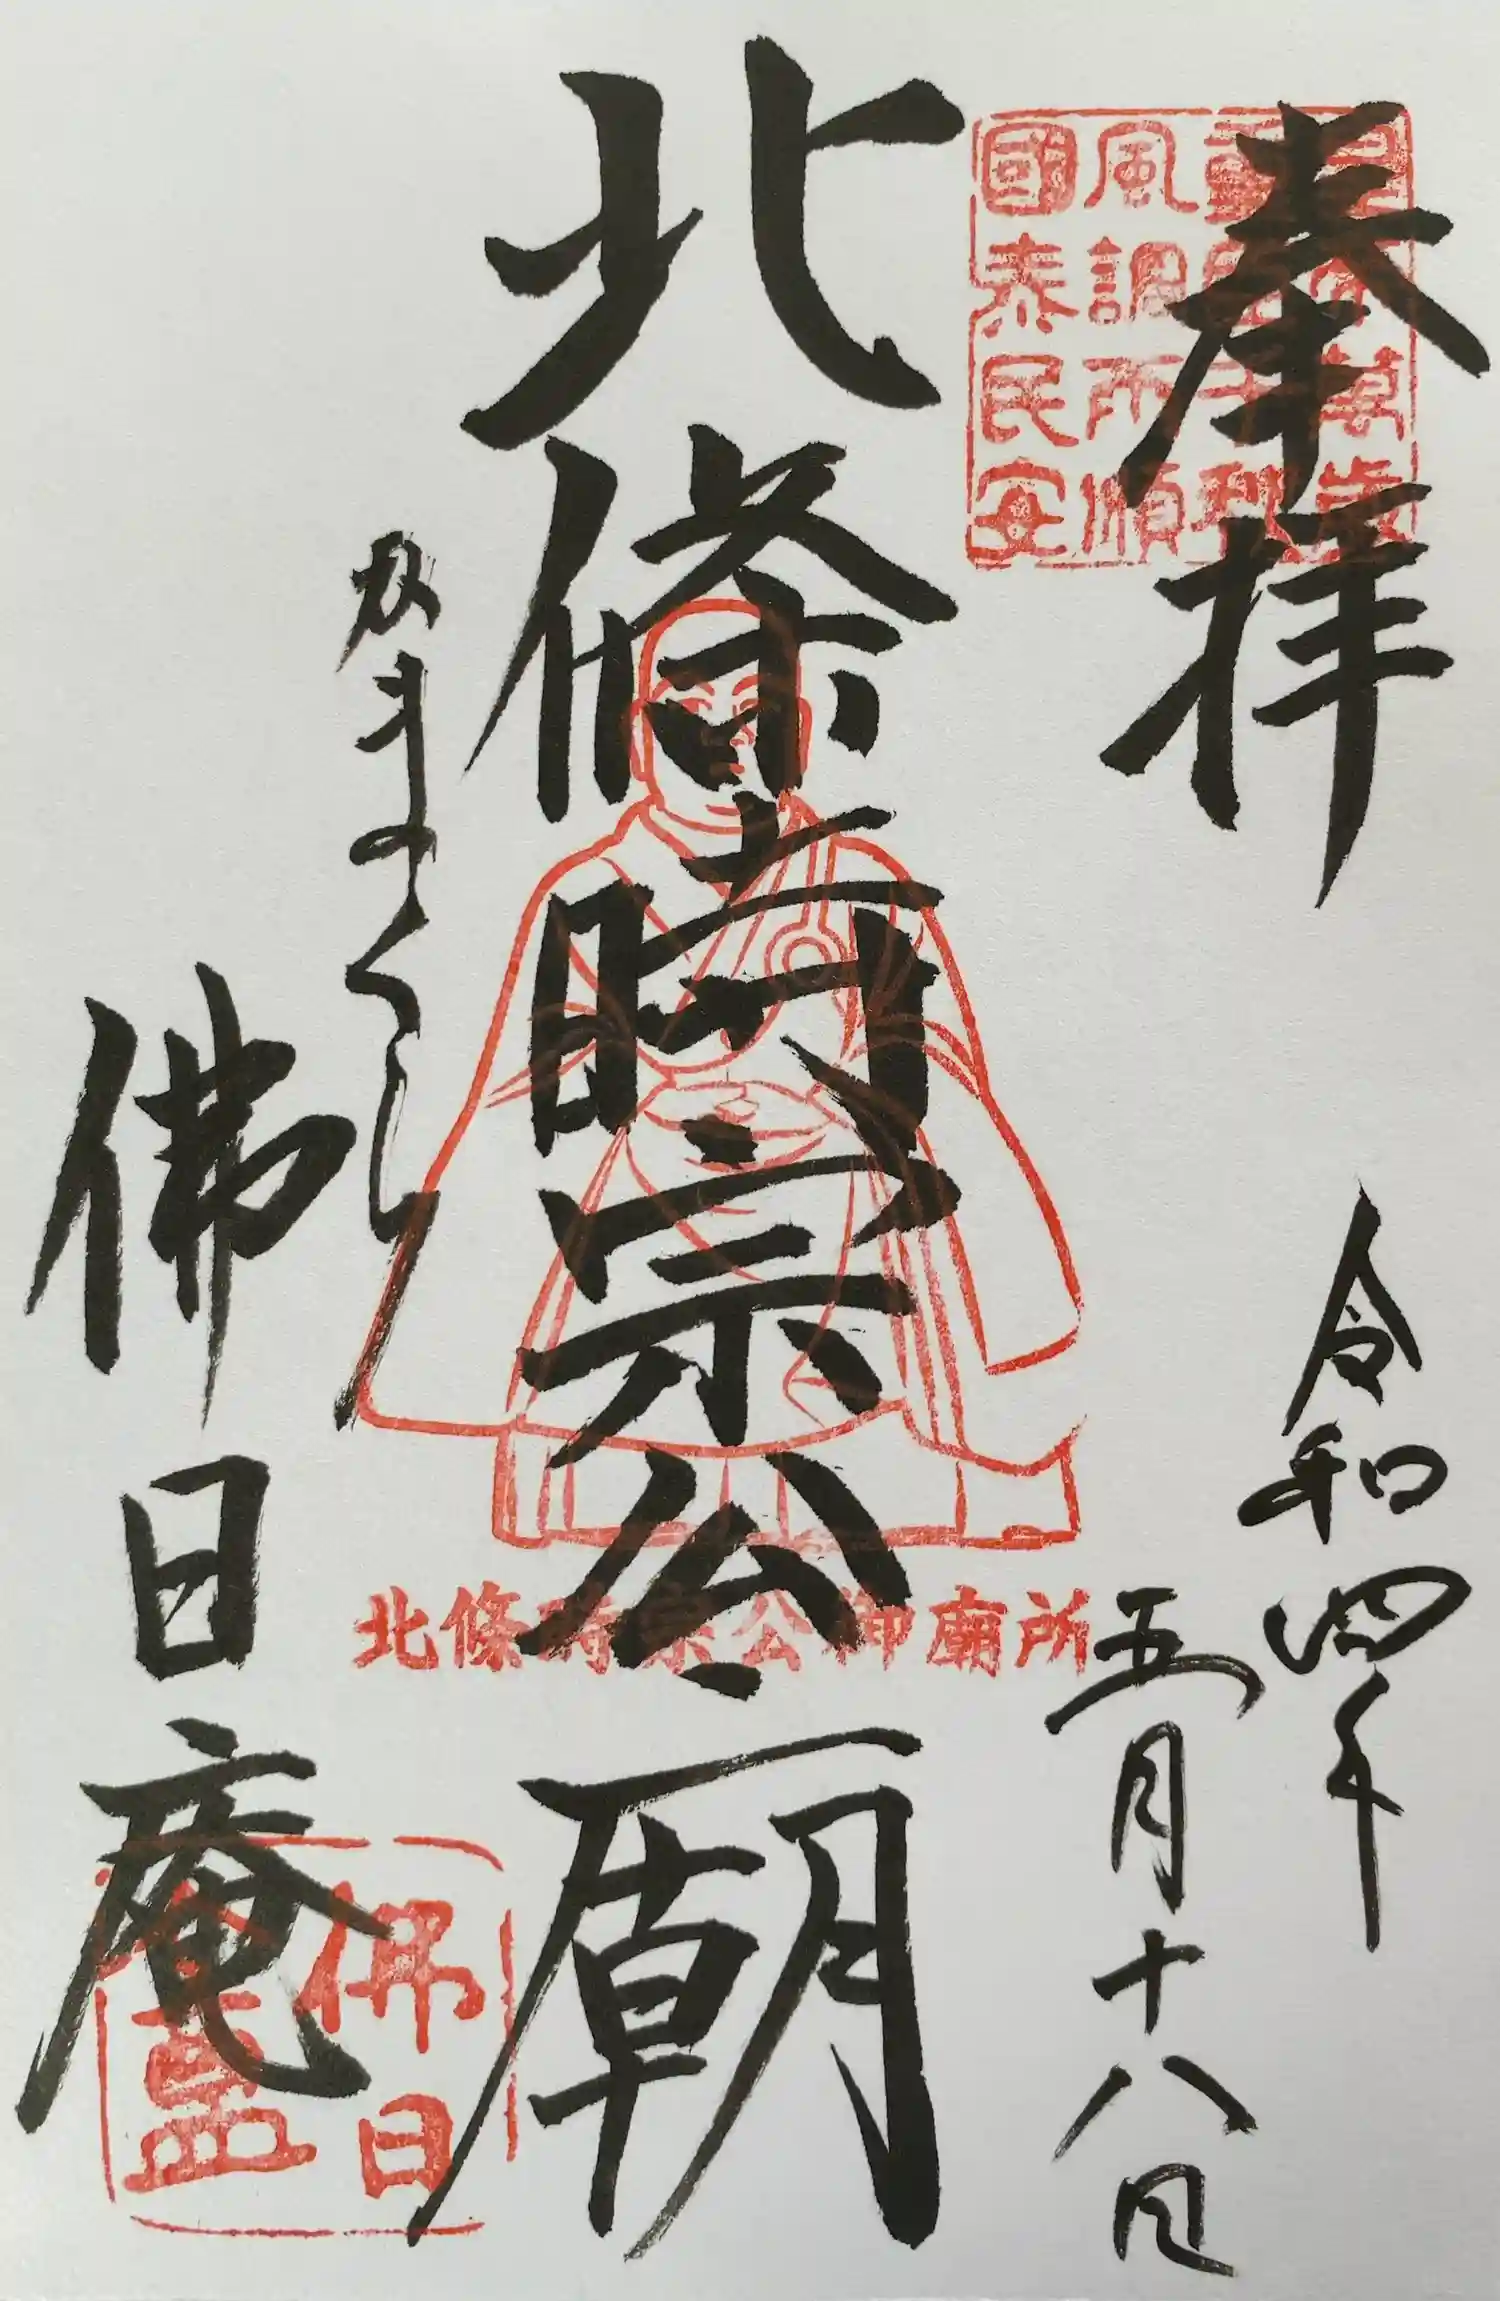 奉拝
令和四年
五月十八日
北條時宗公廟
かまくら
佛日庵
風調雨順
國泰民安
北條時宗公御廟所
佛日